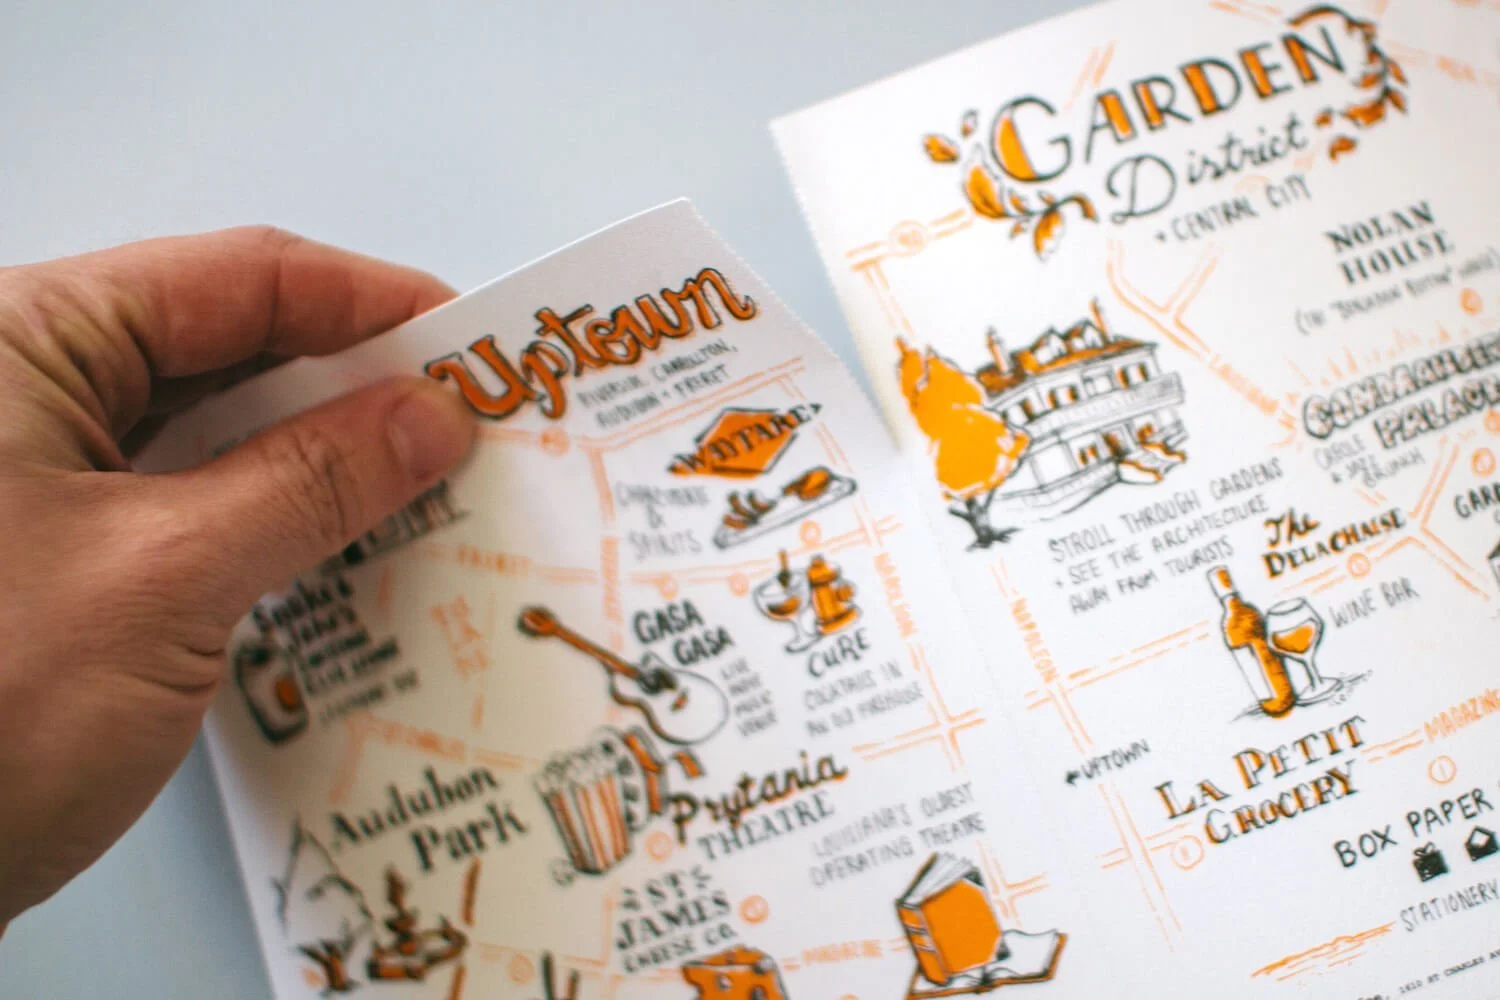 Uptown
RIVERBEND, CARROLLTON,
AUDUBON + FRERET
WAYFARE
CHARCUTERIE
&
SPIRITS
FRERET
NAPOLEON
GASA
GASA
LIVE
INDIE
MUSIC
VENUE
CURE
COCKTAILS IN
AN OLD FIREHOUSE
Audubon
Park
Prytania
THEATRE
LOUISIANA'S OLDEST
OPERATING THEATRE
ST.
JAMES
CHEESE CO.
MAGAZINE
GARDEN
District
+ CENTRAL CITY
NOLAN
HOUSE
(THE "BENJAMIN BUTTON" HOUSE)
CREOLE
+ JAZZ
BRUNCH
STROLL THROUGH GARDENS
+ SEE THE ARCHITECTURE
AWAY FROM TOURISTS
The
DELACHAISE
WINE BAR
NAPOLEON
UPTOWN
LA PETIT
GROCERY
MAGAZINE
BOX PAPER
STATIONERY